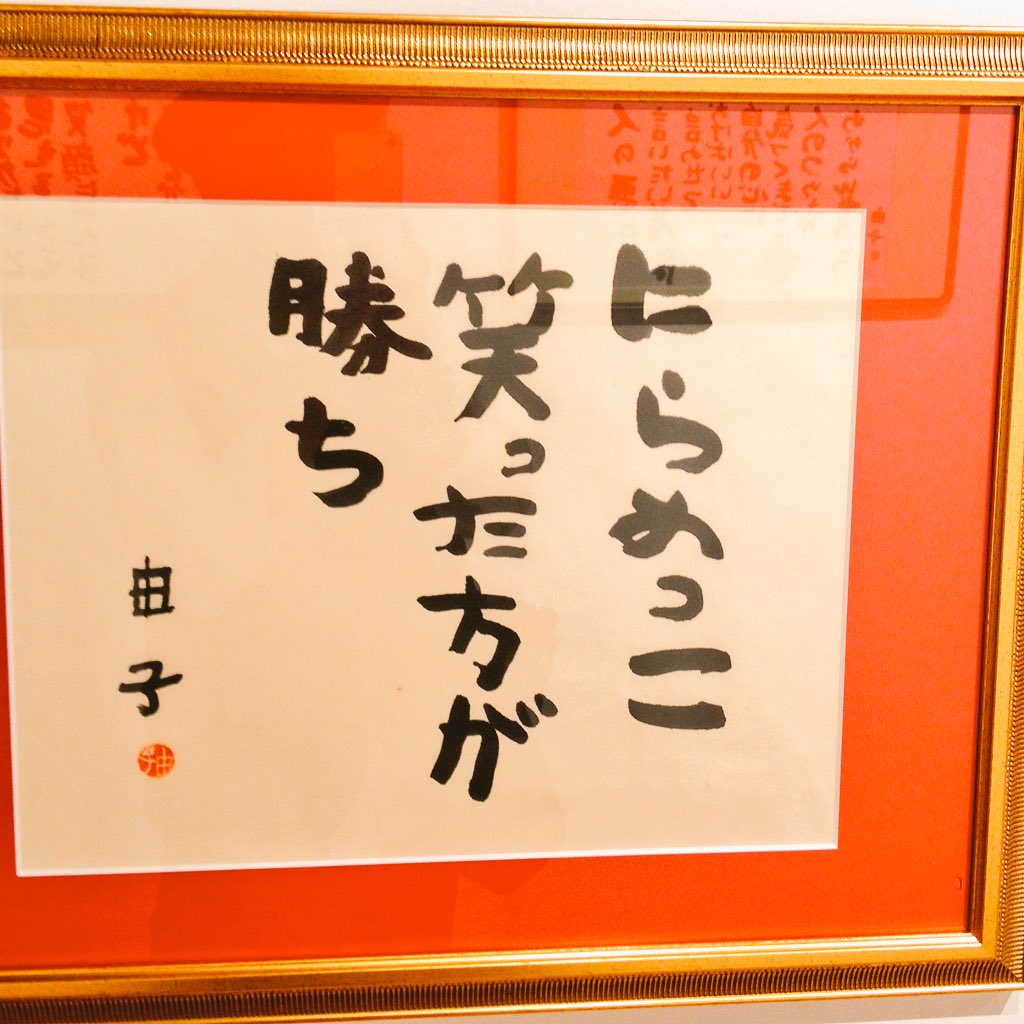 にらめっこ
笑った方が
勝ち
由子